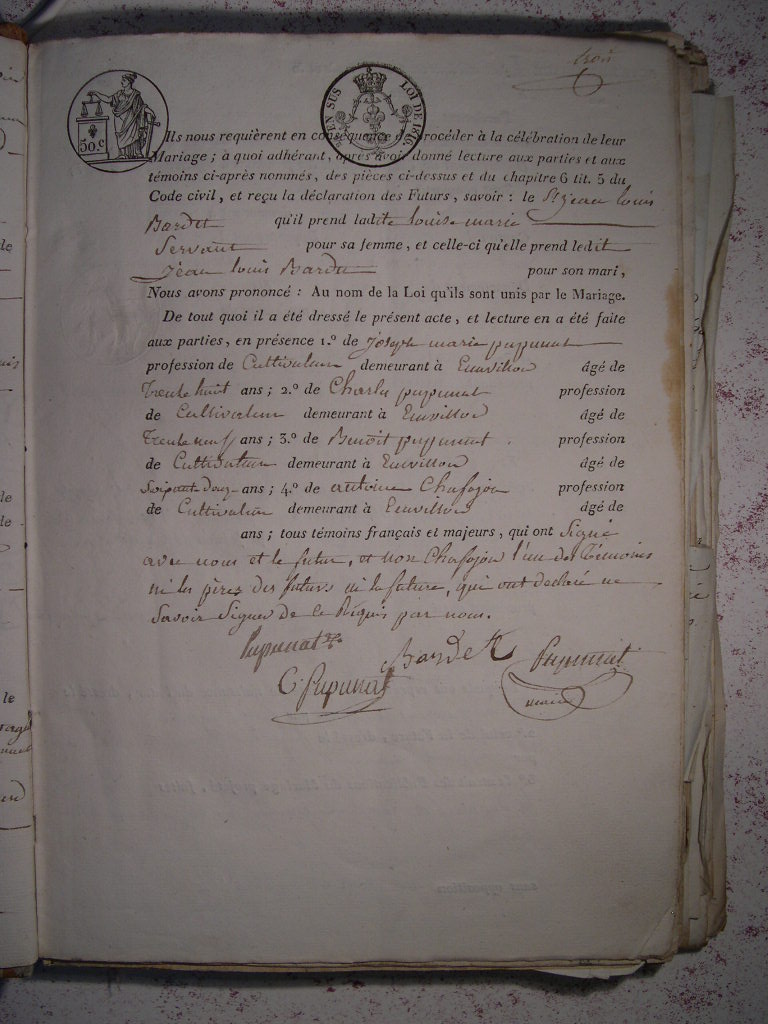 trois
50.c
EN SUS LOI DE 1816.
Ils nous requièrent en conséquence de procéder à la célébration de leur
Mariage ; à quoi adhérant, après avoir donné lecture aux parties et aux
témoins ci-après nommés, des pièces ci-dessus et du chapitre 6 tit. 5 du
Code civil, et reçu la déclaration des Futurs, savoir : le Sr jean louis
Bardet qu'il prend ladite louise marie
Servant pour sa femme, et celle-ci qu'elle prend ledit
Jean louis Bardet pour son mari,
Nous avons prononcé : Au nom de la Loi qu'ils sont unis par le Mariage.
De tout quoi il a été dressé le présent acte, et lecture en a été faite
aux parties, en présence 1.º de joseph marie pupunat
profession de Cultivateur demeurant à âgé de
Trente huit ans ; 2.º de Charles pupunat profession
de Cultivateur demeurant à âgé de
Trente neuf ans ; 3.º de Benoit pupunat profession
de Cultivateur demeurant à âgé de
Soixante douze ans ; 4.º de antoine Chafojon profession
de Cultivateur demeurant à âgé de
ans ; tous témoins français et majeurs, qui ont Signé
avec nous et le futur, et non Chafojon l'un des Témoins
ni les pères des futurs ni la future, qui ont déclaré ne
Savoir Signer de ce Requis par nous.
Pupunat Bardet Pupunat
C. Pupunat maire